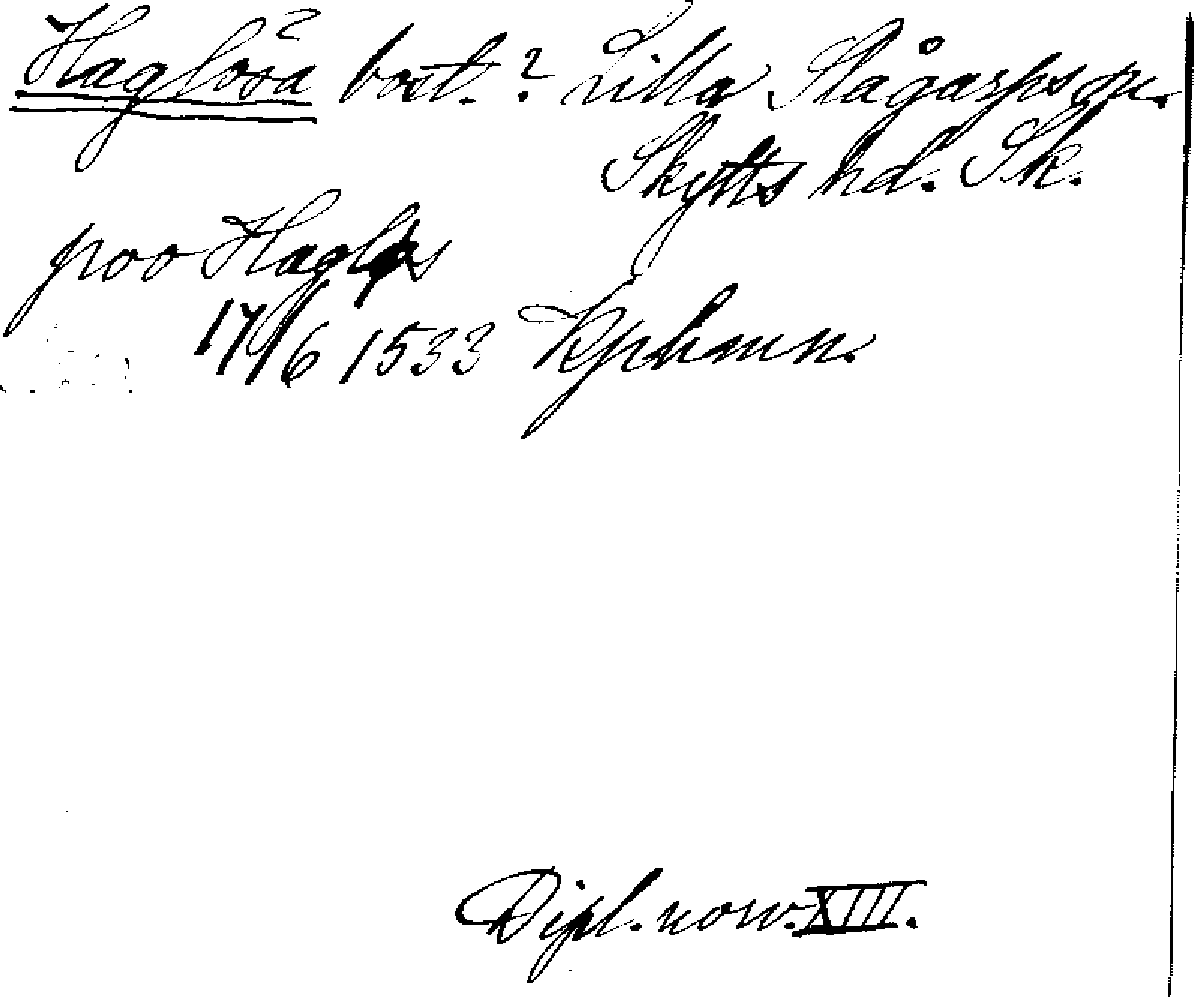 Haglösa bost.? Lilla Slågarps sn.
Skytts hd. Sk.
poo Hagløs
17/6 1533 Kphamn.
Dipl. norv. XIII.